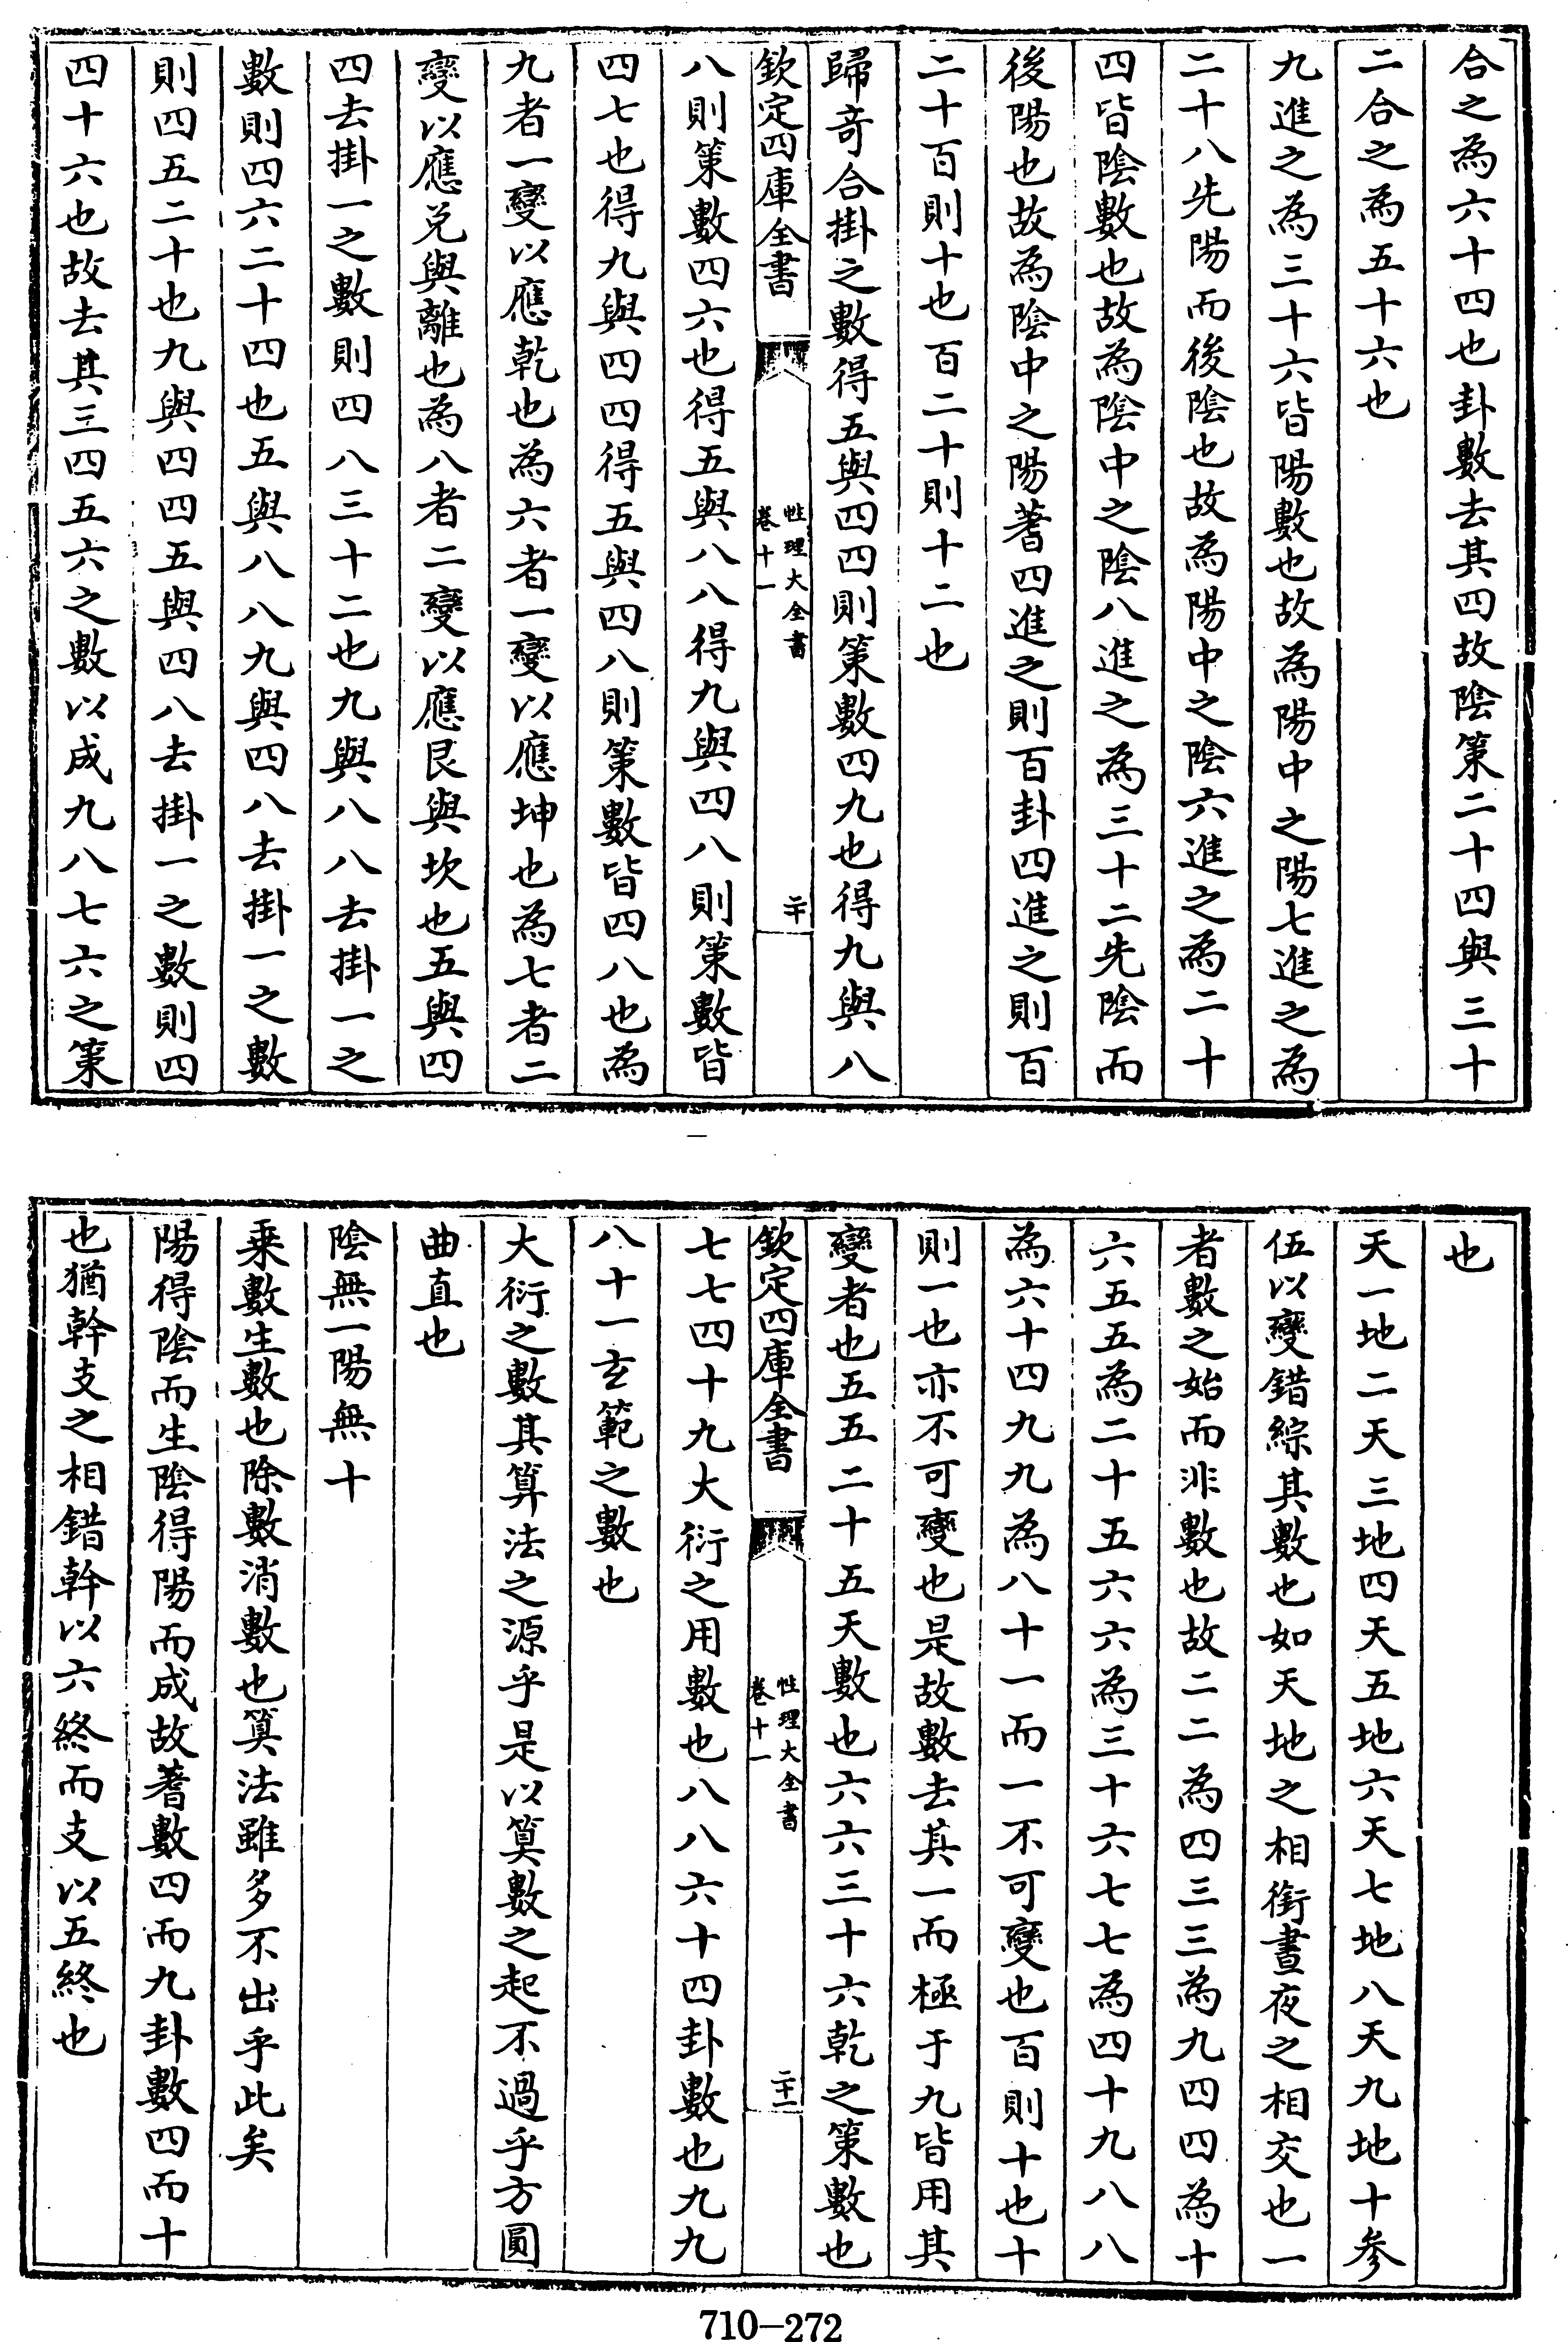 合之為六十四也卦數去其四故陰策二十四與三十
二合之為五十六也
九進之為三十六皆陽數也故為陽中之陽七進之為
二十八先陽而後陰也故為陽中之陰六進之為二十
四皆陰數也故為陰中之陰八進之為三十二先陰而
後陽也故為陰中之陽蓍四進之則百卦四進之則百
二十百則十也百二十則十二也
歸竒合掛之數得五與四四則策數四九也得九與八
欽定四庫全書
性理大全書
卷十一
二十
八則策數四六也得五與八八得九與四八則策數皆
四七也得九與四四得五與四八則策數皆四八也為
九者一變以應乾也為六者一變以應坤也為七者二
變以應兑與離也為八者二變以應艮與坎也五與四
四去掛一之數則四八三十二也九與八八去掛一之
數則四六二十四也五與八八九與四八去掛一之數
則四五二十也九與四四五與四八去掛一之數則四
四十六也故去其三四五六之數以成九八七六之策
也
天一地二天三地四天五地六天七地八天九地十參
伍以變錯綜其數也如天地之相銜晝夜之相交也一
者數之始而非數也故二二為四三三為九四四為十
六五五為二十五六六為三十六七七為四十九八八
為六十四九九為八十一而一不可變也百則十也十
則一也亦不可變也是故數去其一而極于九皆用其
變者也五五二十五天數也六六三十六乾之策數也
欽定四庫全書
性理大全書
卷十一
二十一
七七四十九大衍之用數也八八六十四卦數也九九
八十一玄範之數也
大衍之數其算法之源乎是以算數之起不過乎方圓
曲直也
陰無一陽無十
乗數生數也除數消數也算法雖多不出乎此矣
陽得陰而生陰得陽而成故蓍數四而九卦數四而十
也猶幹支之相錯幹以六終而支以五終也
710—272